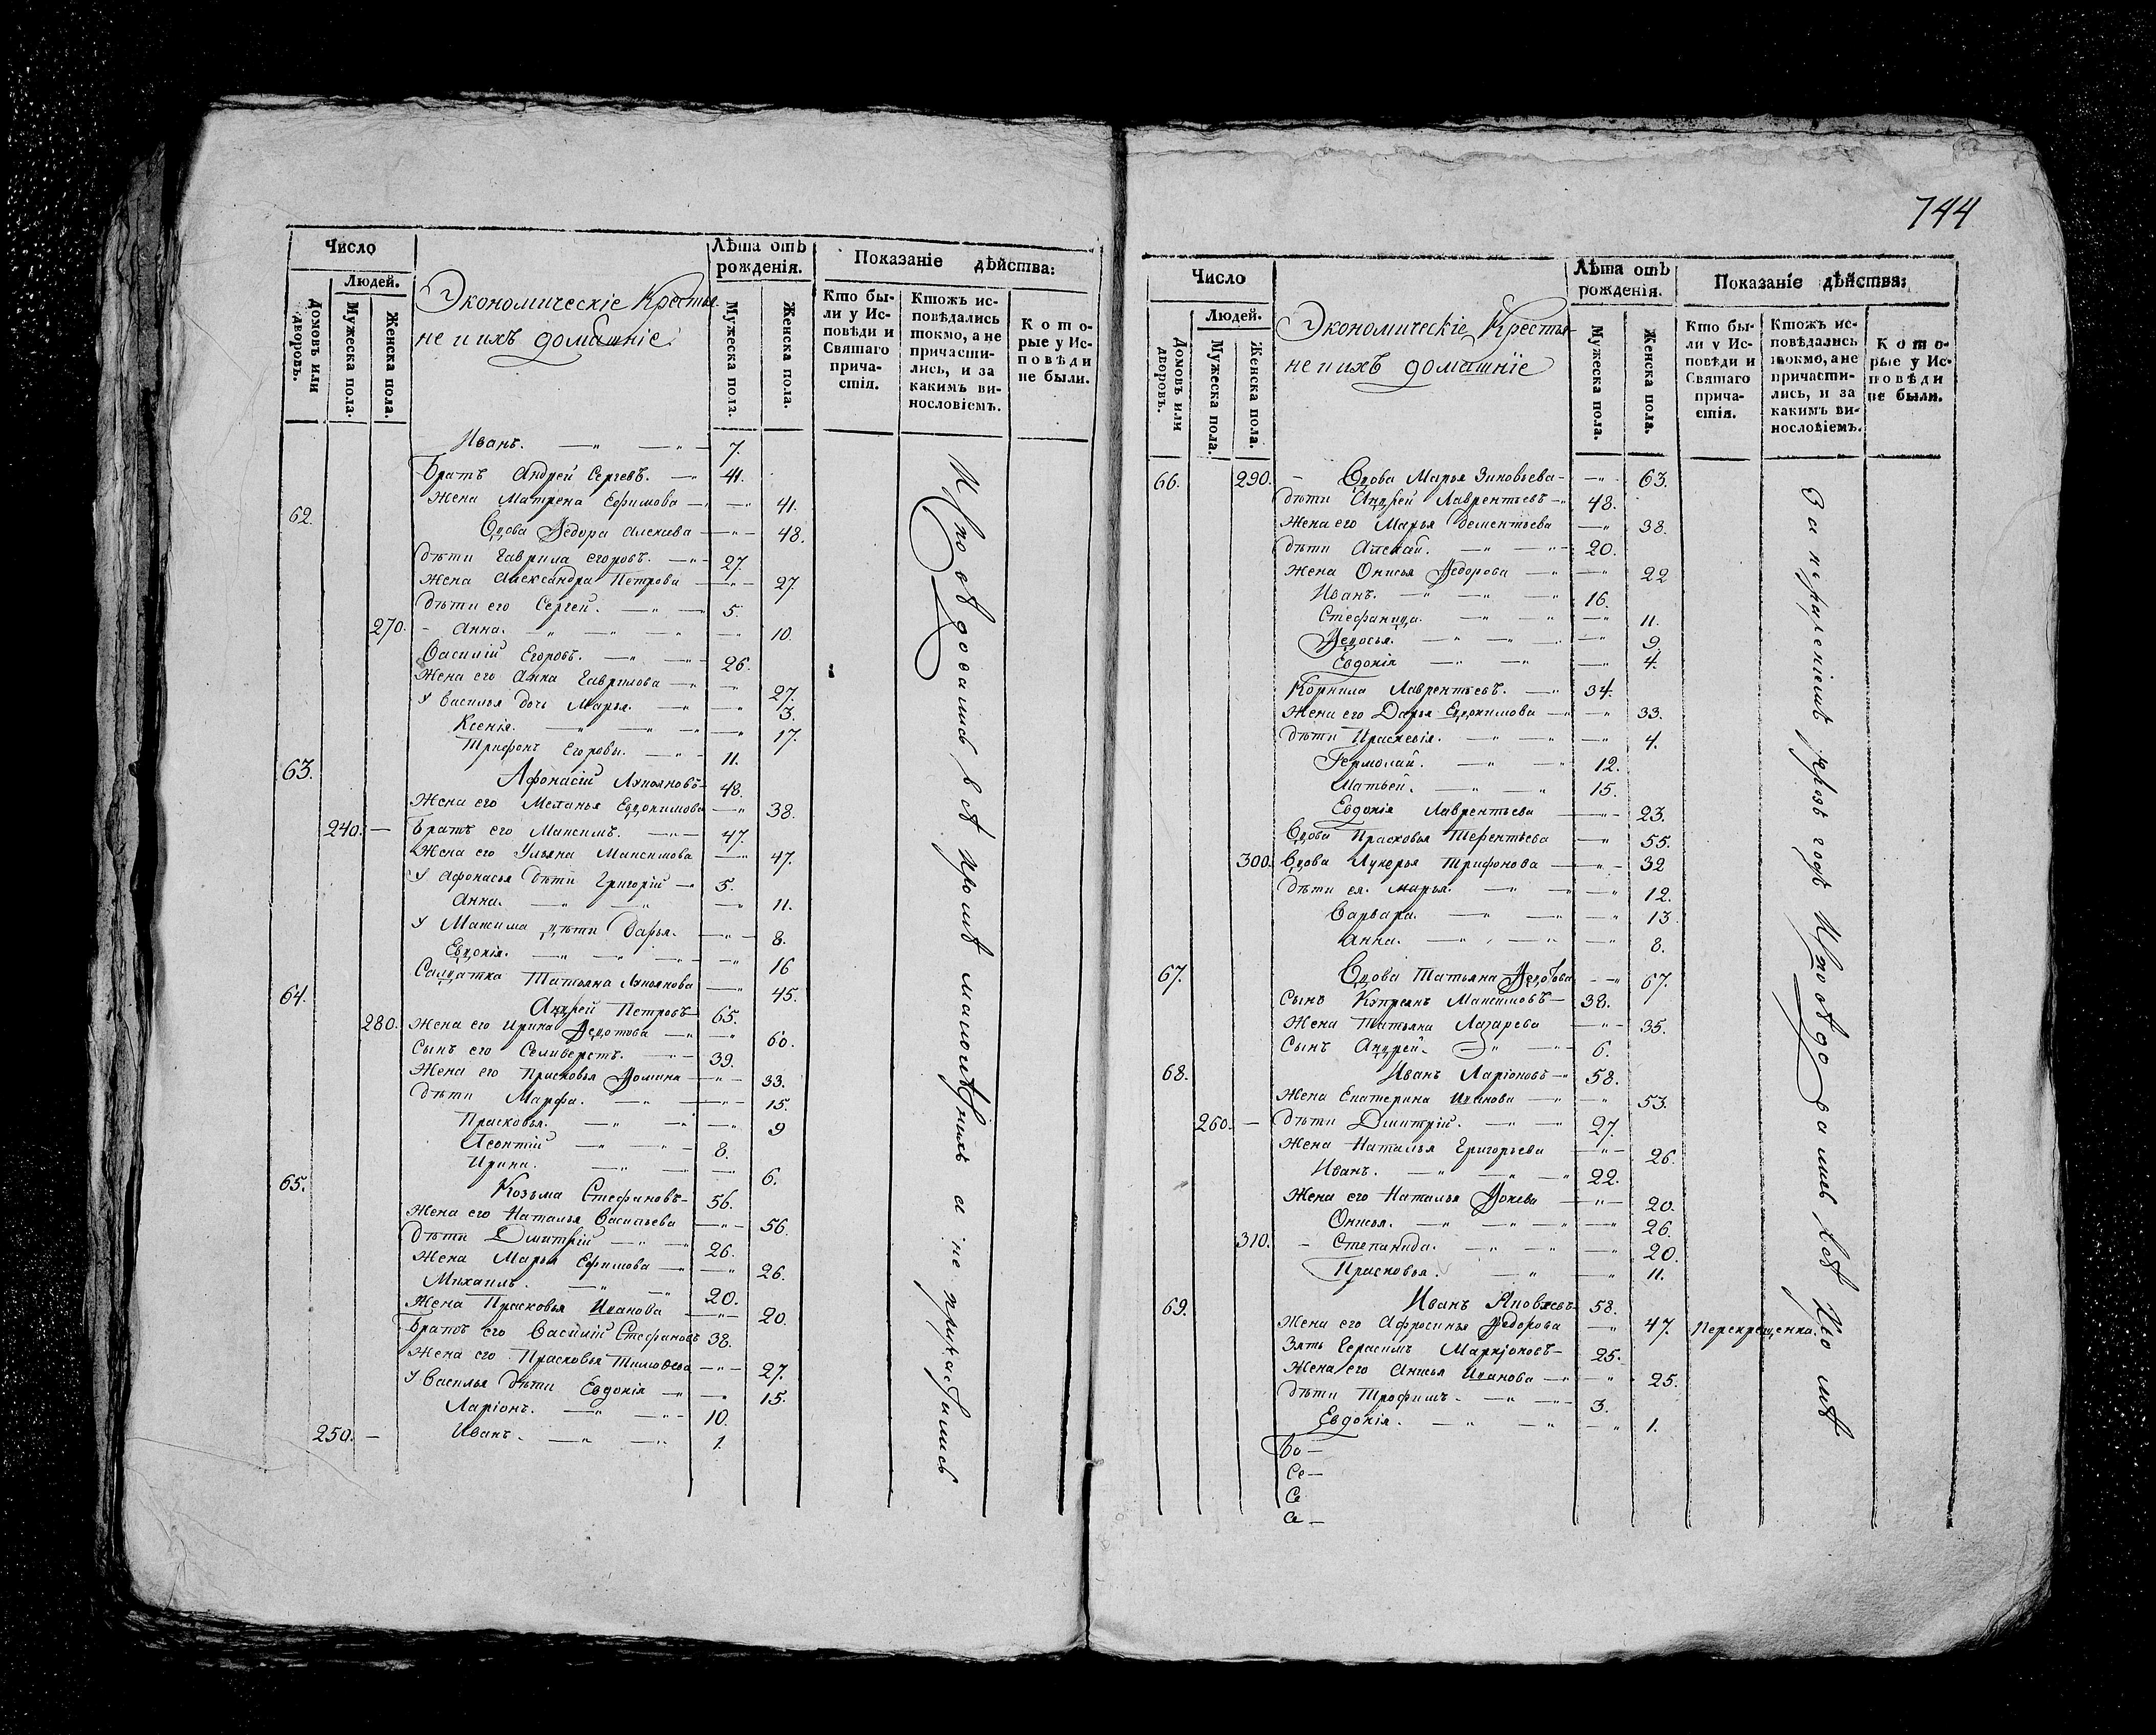 Число
Людей.
Домовъ или дворовъ.
Мужеска пола.
Женска пола.
Экономическіе Крестья-
не и ихъ домашніе
Лѣта отъ
рожденія.
Мужеска пола.
Женска пола.
Показаніе дѣйства:
Кто бы-
ли у Ис-
повѣди и
Святаго
прича-
стія.
Ктожъ ис-
повѣдались
токмо, а не
причасти-
лись, и за
какимъ ви-
нословіемъ.
Кото-
рые у Ис-
повѣди
не были.
Иванъ. 7.
Братъ Андрей Сергевъ. 41.
Жена Матрена Ефимова 41.
62. Вдова Ѳедора Алекиева 48.
Дѣти Гаврила Егоровъ. 27.
Жена Александра Петрова 27.
Дѣти его Сергей. 5.
270. Анна. 10.
Василій Егоровъ. 26.
Жена его Анна Гаврилова 27.
У Василья дочь Марья. 3.
Ксенія. 17.
Трифонъ Егоровы. 11.
63. Афонасій Лукьяновъ 48.
Жена его Меланья Евдокимова 38.
240. Братъ его Максимъ. 47.
Жена его Ульяна Максимова 47.
У Афонасья дѣти Григорій 5.
Анна. 11.
У Максима дѣти Дарья. 8.
Евдокія. 16
Салдатка Татьяна Лукьянова 45.
64. Андрей Петровъ 65.
280. Жена его Ирина Ѳедотова 60.
Сынъ его Селиверстъ. 39.
Жена его Прасковья Ѳомина 33.
Дѣти Марфа. 15.
Прасковья. 9
Леонтій 8.
Ирина. 6.
65. Козьма Стефановъ 56.
Жена его Наталья Васильева 56.
Дѣти Дмитрій 26.
Жена Марья Ефимова 26.
Михаилъ. 20.
Жена Прасковья Иванова 20.
Братъ его Василій Стефановъ 38.
Жена его Прасковья Тимоѳева 27.
У Василья дѣти Евдокія 15.
Ларіонъ. 10.
250. Иванъ. 1.
Исповѣдовались всѣ кромѣ малолѣтнихъ а не прикастились
744
Число
Людей.
Домовъ или дворовъ.
Мужеска пола.
Женска пола.
Экономическіе Крестья-
не и ихъ домашніе
Лѣта отъ
рожденія.
Мужеска пола.
Женска пола.
Показаніе дѣйства:
Кто бы-
ли у Ис-
повѣди и
Святаго
прича-
стія.
Ктожъ ис-
повѣдались
токмо, а не
причасти-
лись, и за
какимъ ви-
нословіемъ.
Кото-
рые у Ис-
повѣди
не были.
66. 290. Вдова Марья Зиновьева 63.
Дѣти Андрей Лаврентьевъ 48.
Жена его Марья Дементьева 38.
Дѣти Алекѣй. 20.
Жена Онисья Ѳедорова 22
Иванъ. 16.
Стефанида. 11.
Ѳедосья. 9.
Евдокія 4.
Корнила Лаврентьевъ. 34.
Жена его Дарья Евдокимова 33.
Дѣти Праскевія. 4.
Гермолай. 12.
Матвей. 15.
Евдокія Лаврентьева 23.
Вдова Прасковья Терентьева 55.
300. Вдова Лукерья Трифонова 32
Дѣти ея. Марья. 12.
Варвара. 13.
Анна. 8.
67. Вдова Татьяна Ѳедотова 67.
Сынъ Купреянъ Максимовъ 38.
Жена Татьяна Лазарева 35.
Сынъ Андрей. 6.
68. Иванъ Ларіоновъ 58.
Жена Екатерина Иванова 53.
260. Дѣти Дмитрій. 27.
Жена Наталья Григорьева 26.
Иванъ. 22.
Жена его Наталья Ѳокева 20.
Онисья. 26.
310. Степанида. 20.
Прасковья. 11.
69. Иванъ Яковлевъ 58.
Жена его Афросинья Ѳедорова 47. Перекрещенка.
Зять Герасимъ Маркіоновъ 25.
Жена его Анисья Иванова 25.
Дѣти Трофимъ. 3.
Евдокія. 1.
Во—
Се—
Се
Се—
За нераденіемъ чрезъ годъ Исповѣдовались всѣ кромѣ